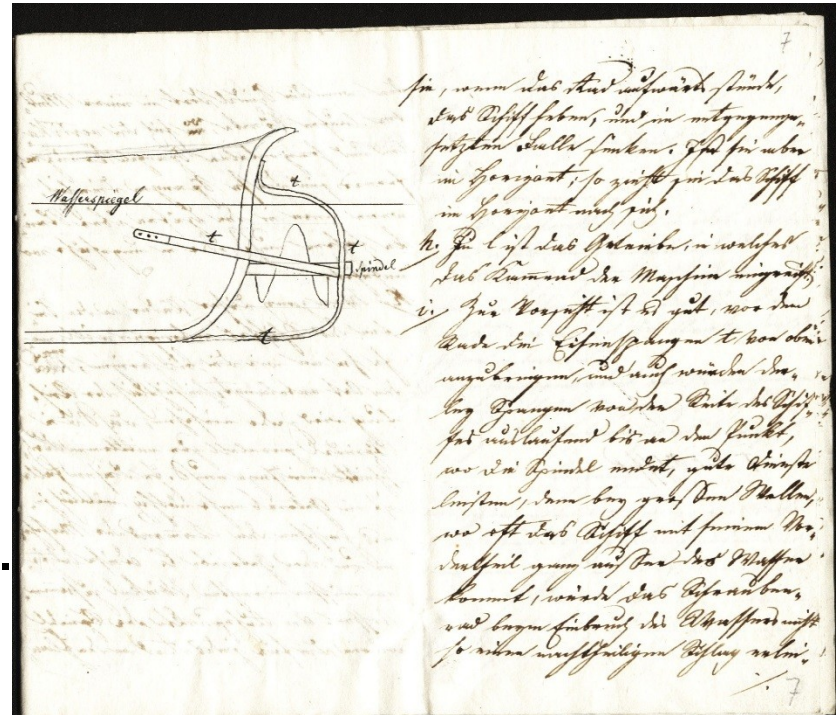 7
sie, wenn das Rad aufwärts stünde,
das Schiff heben, und im entgegenge-
setzten Falle senken. Ist sie aber
im Horizont; so zieht sie das Schiff
im Horizont nach sich.
h. In l ist das Getriebe, in welches
das Kammrad der Maschine eingreift.
i. Zur Vorsicht ist es gut, vor dem
Rade die Eisenspangen t, von oben
anzubringen, und auch würden der-
ley Spangen von der Seite des Schif-
fes auslaufend bis an den Punkt,
wo die Spindel endet, gute Dienste
leisten, denn bey großen Wellen,
wo oft das Schiff mit seinem Vor-
dertheil ganz außer das Wasser
kommt, würde das Schrauben-
rad beym Einbruch des Wassers nicht
so einen nachtheiligen Schlag erlei-
7
Wasserspiegel
t
t
t
Spindel
t